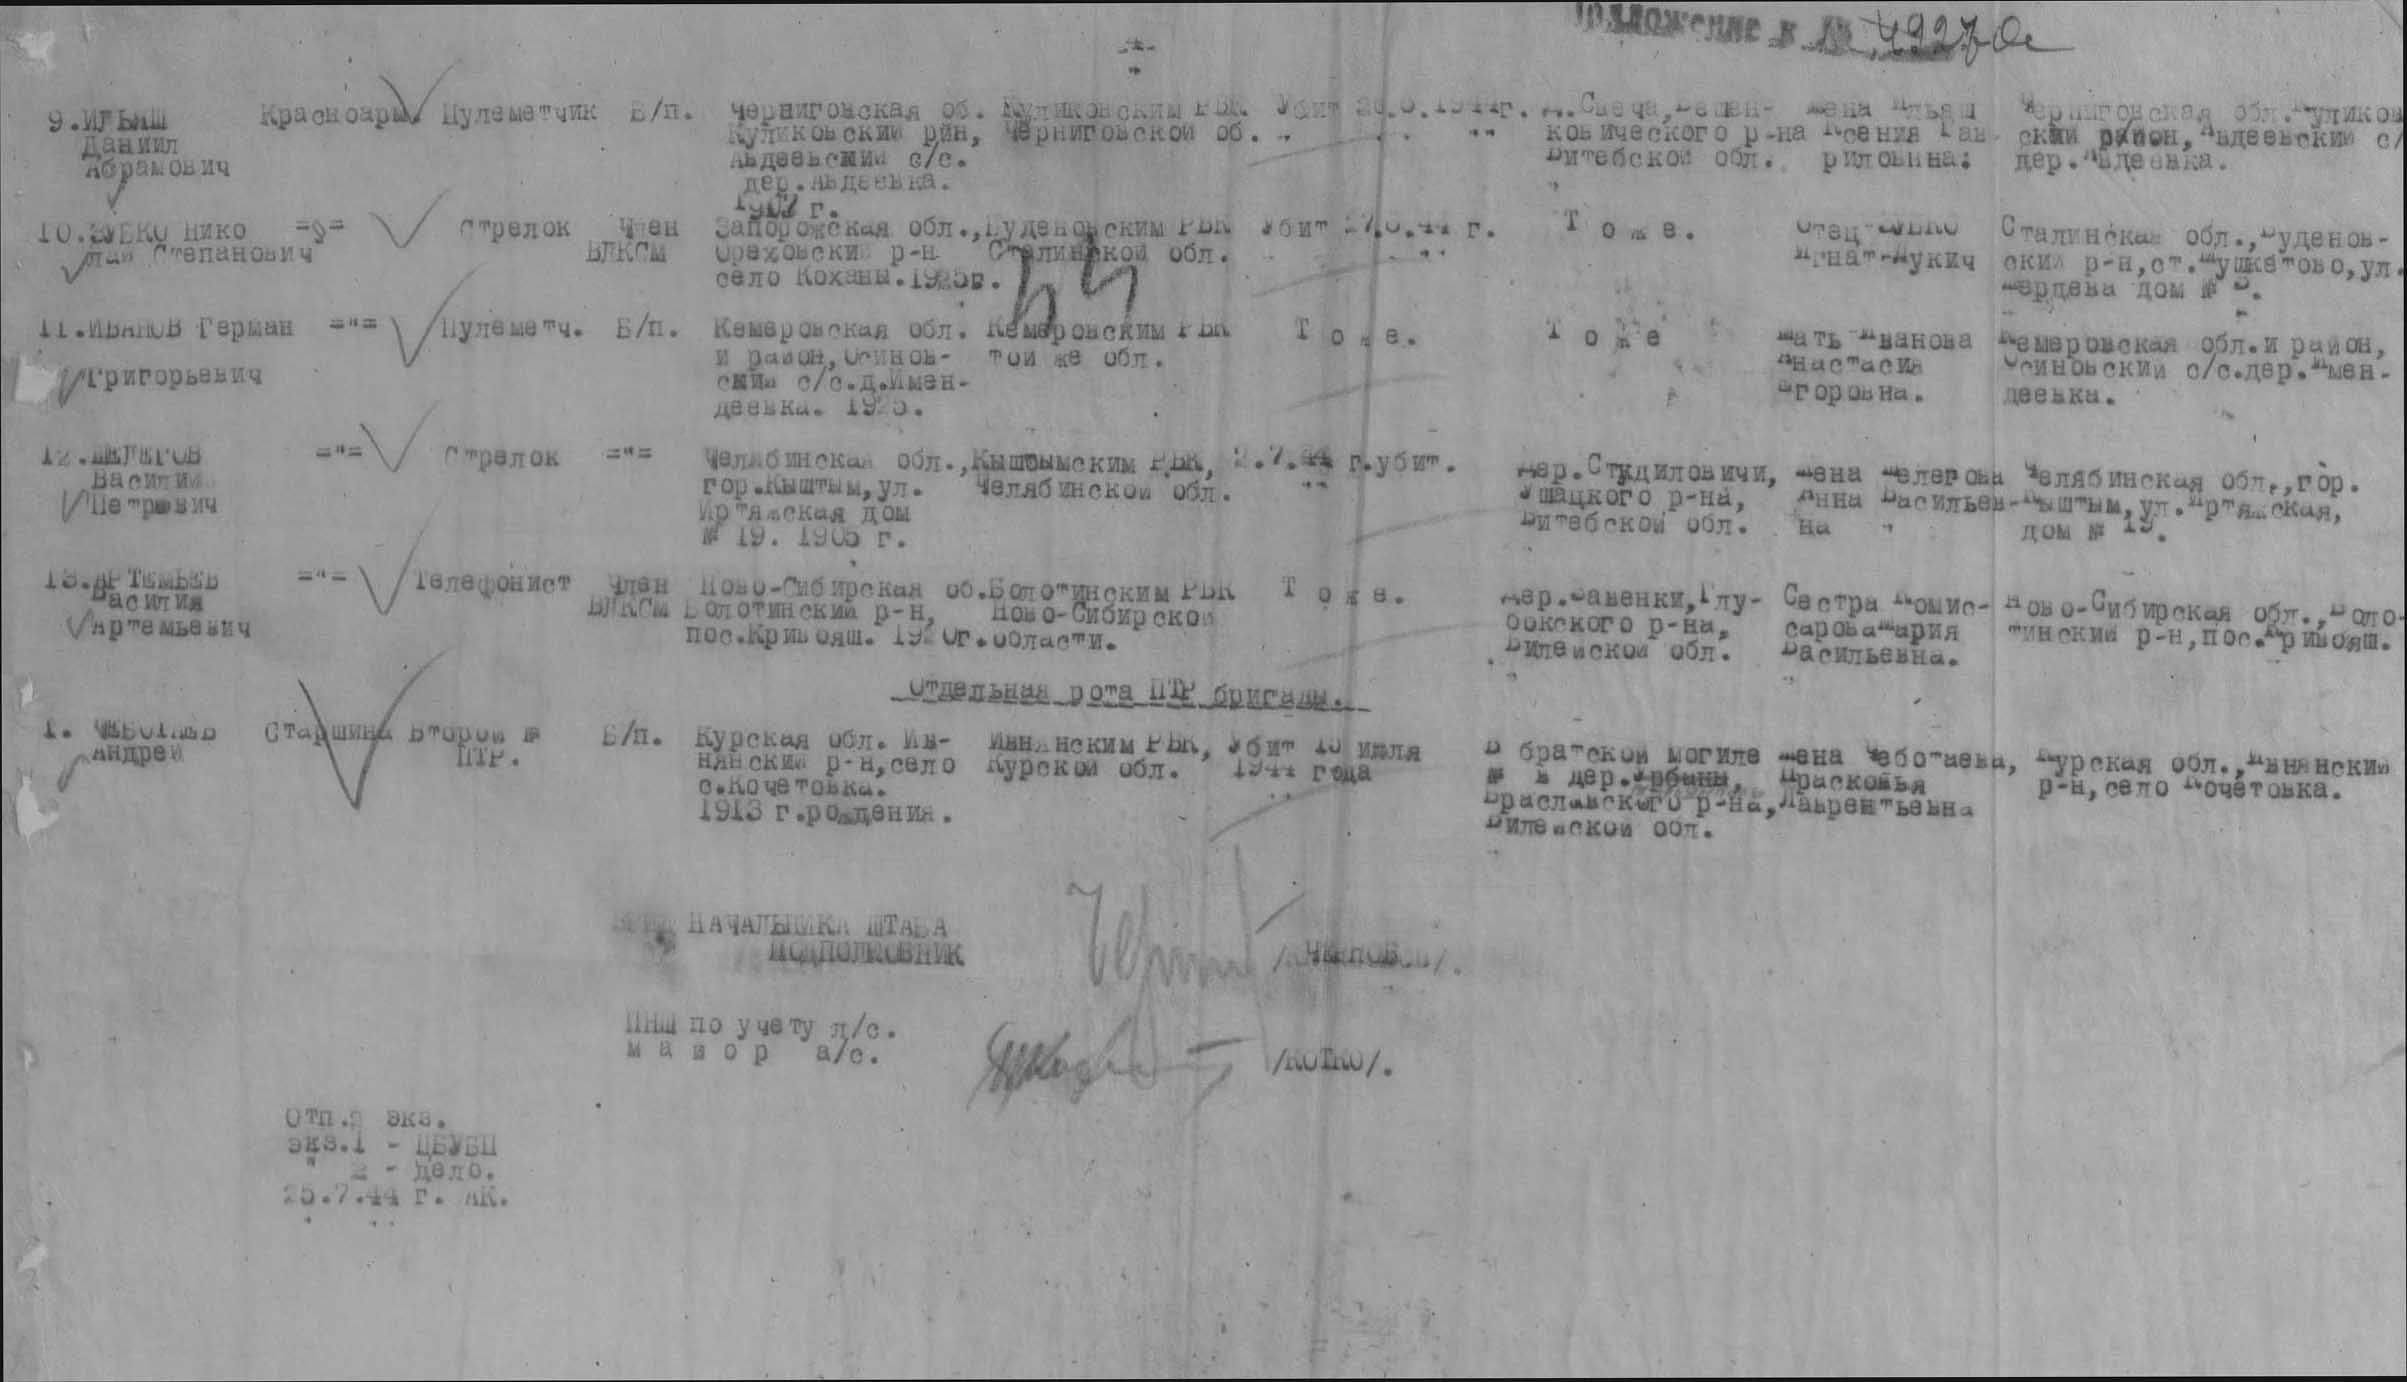 Приложение к № 49270с
9. ИЛЬЯШ Красноарм. Пулеметчик Б/п. Черниговская об. Куликовским РВК Убит 26.6.1944г. д.Свеча, Бешен- Жена Ильяш Черниговская обл. Куликов
Даниил Куликовский рйн, Черниговской об. ковического р-на Ксения Гав ский район, Авдеевский с/
Абрамович Авдеевский с/с. Витебской обл. риловина: дер. Авдеевка.
дер. Авдеевка.
1907 г.
10. ЗУБКО Нико ="= Стрелок Член Запорожская обл., Буденовским РВК Убит 27.6.44 г. То же. Отец-ЗУБКО Сталинская обл., Буденов-
лай Степанович ВЛКСМ Ореховский р-н Сталинской обл. Игнат-Лукич ский р-н, ст. Мушкетово, ул.
село Коханы. 1925г. дом №
11. ИВАНОВ Герман ="= Пулеметч. Б/п. Кемеровская обл. Кемеровским РВК То же. То же Мать Иванова Кемеровская обл. и район,
и район, Осинов- той же обл. Анастасия Осиновский с/с. дер. Имен-
Григорьевич ский с/с. д. Имен- Егоровна. деевка.
деевка. 1925.
12. ШЕЛЕГОВ ="= Стрелок ="= Челябинская обл., Кыштымским РВК, 2.7.44 г. убит. Дер. Студиловичи, Жена Шелегова Челябинская обл., гор.
Василий гор. Кыштым, ул. Челябинской обл. Ушацкого р-на, Анна Васильев- Кыштым, ул. Иртяжская,
Петрович Иртяжская дом Витебской обл. на дом № 19.
№ 19. 1905 г.
13. АРТЕМЬЕВ ="= Телефонист Член Ново-Сибирская об. Болотинским РВК То же. Дер. Заенки, Глу- Сестра Комис- Ново-Сибирская обл., Боло-
Василий ВЛКСМ Болотинский р-н, Ново-Сибирской бокского р-на, сарова Мария тинский р-н, пос. Кривояш.
Артемьевич пос. Кривояш. 1920г. области. Вилейской обл. Васильевна.
Отдельная рота ПТР бригады.
1. ЧЕБОТАЕВ Старшина Второй № Б/п. Курская обл. Ив- Ивнянским РВК, Убит 10 июля В братской могиле Жена Чеботаева, Курская обл., Ивнянский
Андрей ПТР. нянский р-н, село Курской обл. 1944 года № в дер. Урбаны, Прасковья р-н, село Кочетовка.
с. Кочетовка. Браславского р-на, Лаврентьевна
1913 г. рождения. Вилейской обл.
НАЧАЛЬНИКА ШТАБА
ПОДПОЛКОВНИК
ПНШ по учету л/с.
майор а/с. /КОТКО/.
Отп.2 экз.
экз.1 - ЦБУБП
" 2 - дело.
25.7.44 г. АК.